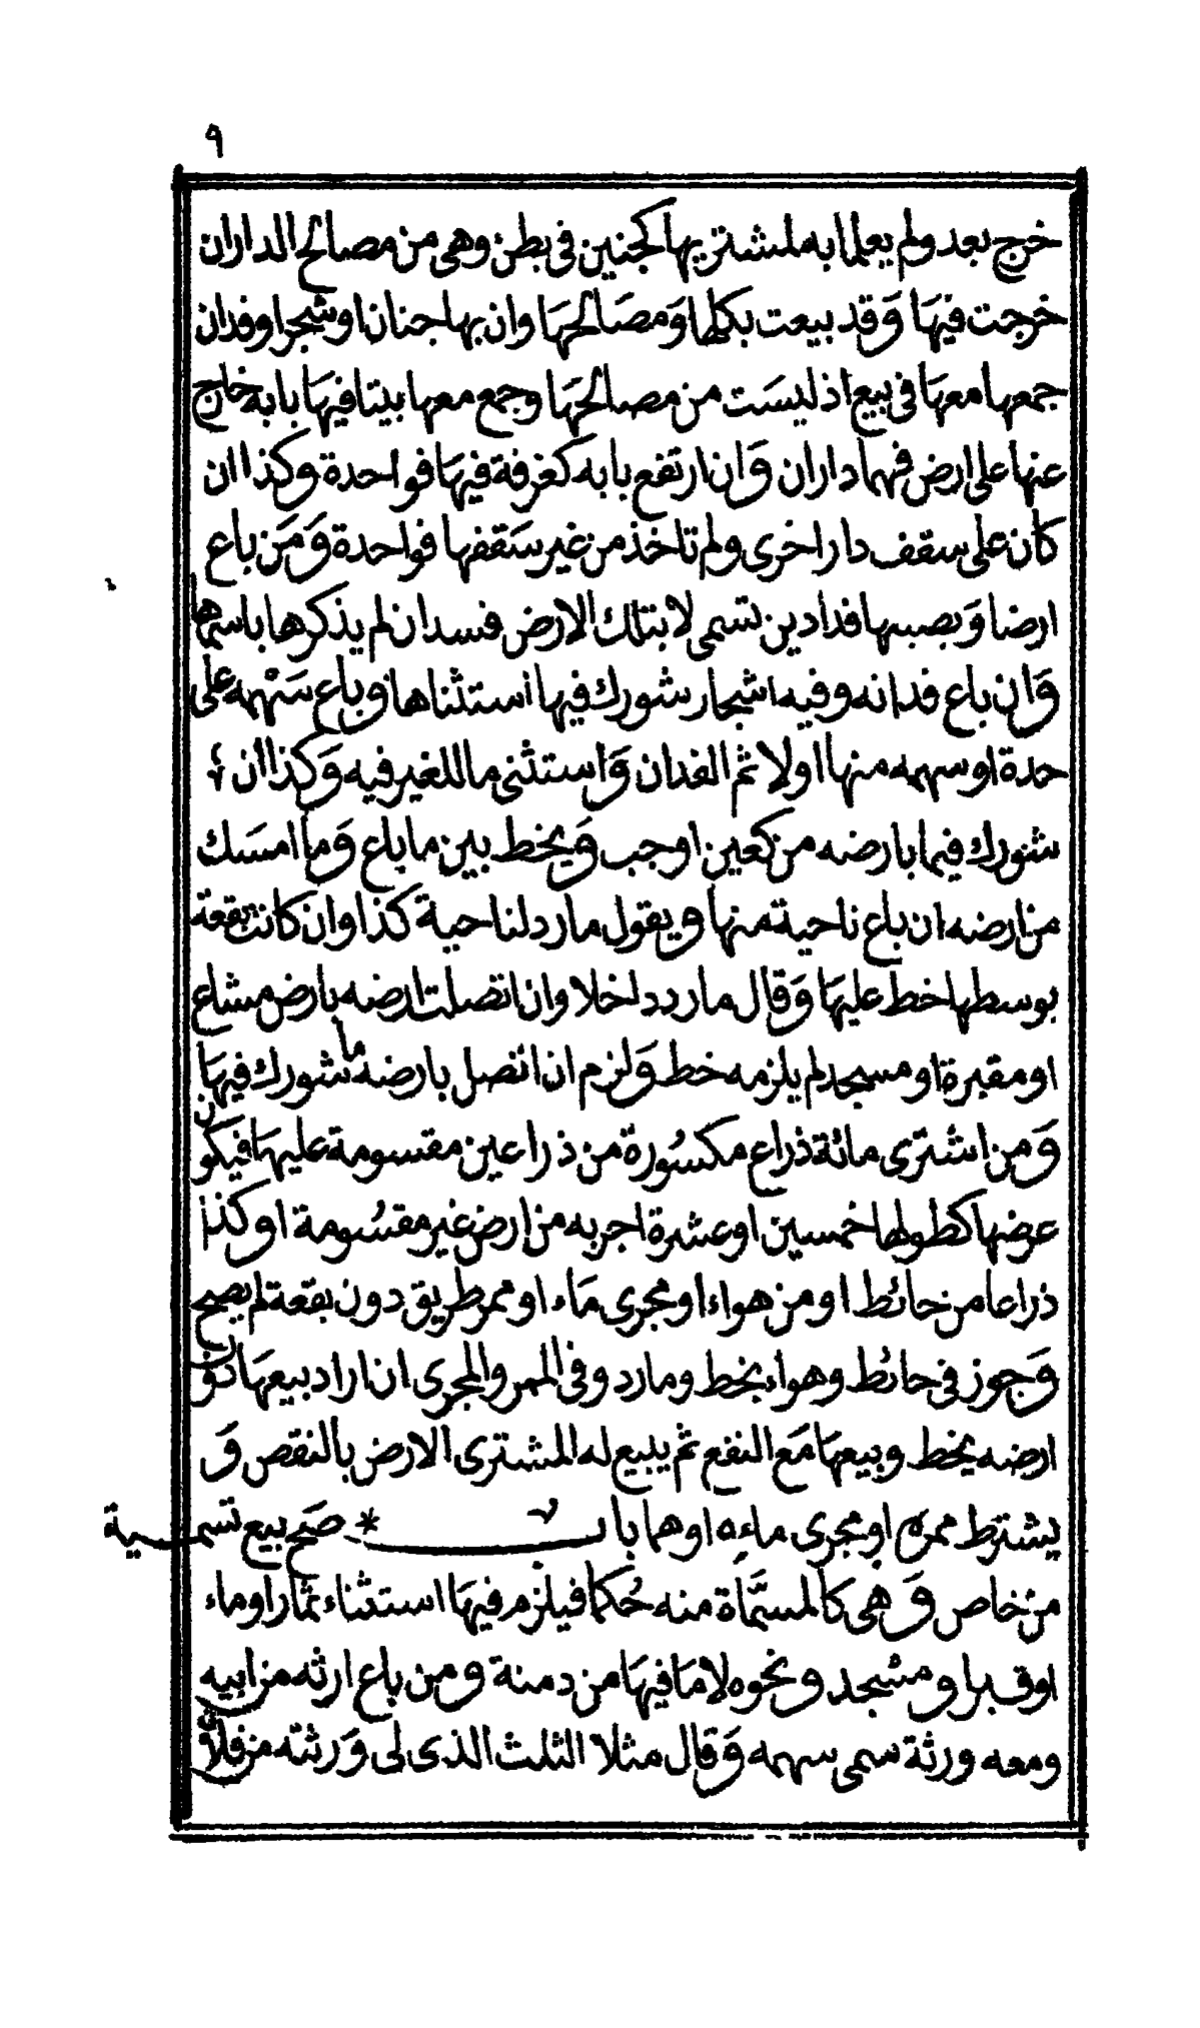 ٩
خرج بعد ولم يعلما به لمشتريها كجنين في بطن وهي من مصالح الدار ان
خرجت فيها وقد بيعت بكلها ومصالحها وان بها جنان او شجر او فدان
جمعها معها في بيع اذ ليست من مصالحها وجمع معها بيتا فيها بابه خارج
عنها على ارض فهما داران وان ارتفع بابه كغرفة فيها فواحدة وكذا ان
كان على سقف دار اخرى ولم تاخذ من غير سقفها فواحدة ومن باع
ارضا وبصبها فدادين تسمى لا بتلك الارض فسد ان لم يذكرها باسمها
وان باع فدانه وفيه اشجار شورك فيها استثناها وباع سهمه على
حدة او سهمه منها اولا ثم الفدان واستثنى ما للغير فيه وكذا ان
شورك فيما بارضه من كعين او جب ويخط بين ما باع وما امسك
من ارضه ان باع ناحية منها ويقول ما رد لناحية كذا وان كانت بقعة
بوسطها خط عليها وقال ما ردد لخلا وان اتصلت ارضه بارض مشاع
او مقبرة او مسجد لم يلزمه خط ولزم ان اتصل بارضه ما شورك فيها
ومن اشترى مائة ذراع مكسورة من ذراعين مقسومة عليها فيكون
عرضها كطولها خمسين او عشرة اجربه من ارض غير مقسومة او كذا
ذراعا من حائط او من هواء او مجرى ماء او ممر طريق دون بقعة لم يصح
وجوز في حائط وهواء بخط وما رد وفي الممر والمجرى ان اراد بيعها دون
ارضه يخط وبيعها مع النفع ثم يبيع له المشترى الارض بالنقص و
يشترط ممره او مجرى ماءه او هما باب * صح بيع تسمية
من خاص وهي كالمسماة منه حكما فيلزم فيها استثناء ثمار او ماء
او قبر او مسجد ونحوه لا ما فيها من دمنة ومن باع ارثه من ابيه
ومعه ورثة سمى سهمه وقال مثلا الثلث الذى لى ورثته من فلان